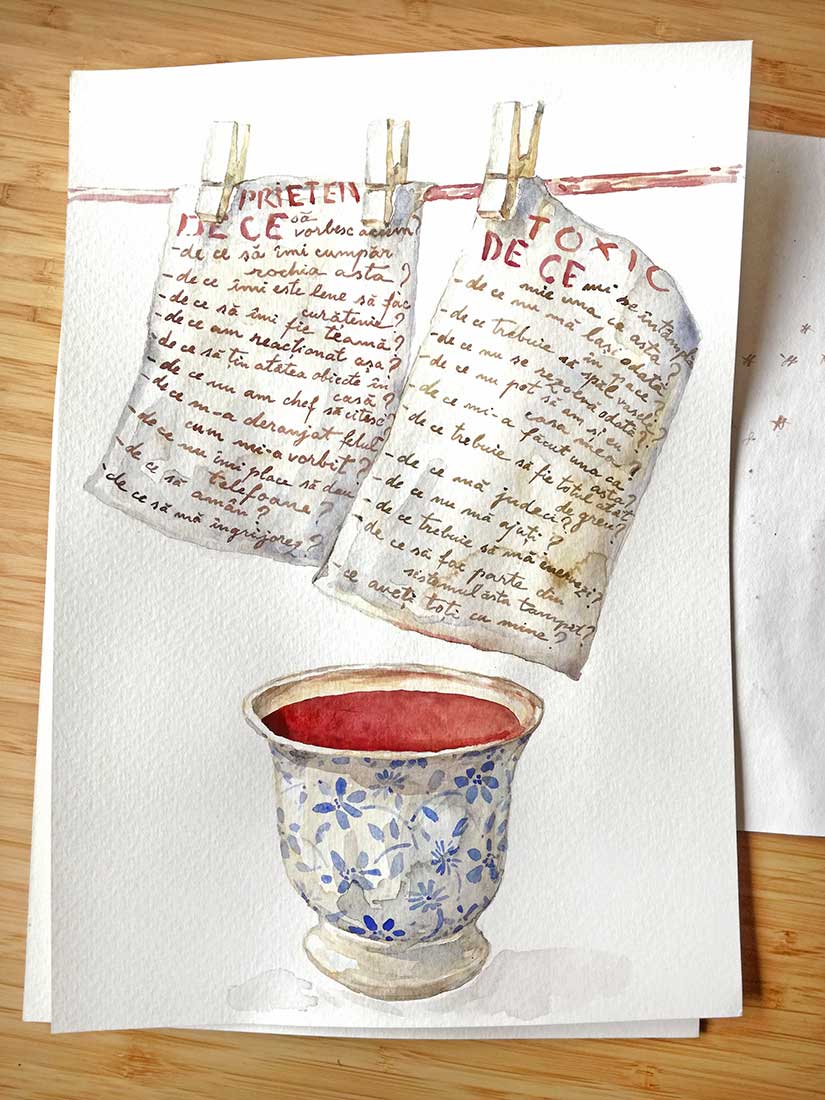 PRIETEN
DE CE să
vorbesc acum?
-de ce să îmi cumpăr
rochia asta?
-de ce îmi este lene să fac
curățenie?
-de ce să îmi fie teamă?
-de ce am reacționat așa?
-de ce să țin atâtea obiecte în
casă?
-de ce nu am chef să citesc?
-de ce m-a deranjat felul
cum mi-a vorbit?
-de ce nu îmi place să dau
telefoane?
-de ce să amân?
-de ce să mă îngrijorez?
TOXIC
DE CE mi se întâmplă
mie una ca asta?
-de ce nu mă lași odată
în pace?
-de ce trebuie să spăl vasele?
-de ce nu se rezolvă odată?
-de ce nu pot să am și eu
casa mea?
-de ce mi-a făcut una ca
asta?
-de ce trebuie să fie totul atât
de greu?
-de ce mă judeci?
-de ce nu mă ajuți?
-de ce trebuie să mă enervezi?
-de ce să fac parte din
sistemul ăsta tâmpit?
-ce aveți toți cu mine?